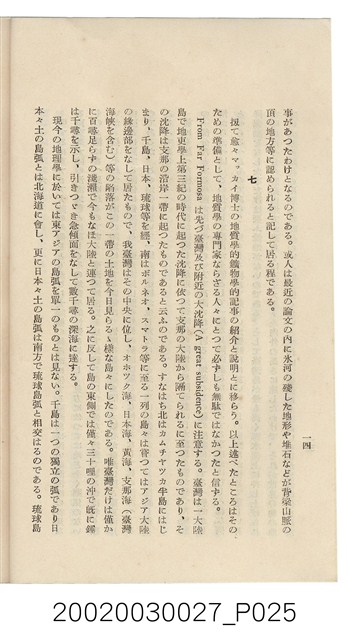 一四
事があつたわけとなるのである。或人は最近の論文の內に氷河の殘した地形や堆石などが脊梁山脈の
頂の地方等に認められると記して居る程である。
七
扨て愈々マ。カイ博士の地質學的鑛物學的記事の紹介と說明とに移らう。以上述べたところはその
ための準備として、地質學の專門家ならざる人々にとつて必ずしも無駄ではなかつたと信ずる。
From Far Formosa は先づ臺灣及び附近の大沈降(A great subsidence)に注意する。臺灣は一大陸
島で地史學上第三紀の時代に起つた沈降に依つて支那の大陸から隔てられるに至つたものであり、そ
の沈降は支那の沿岸一帶に起つたものであると云ふのである。すなはち北はカムチヤツカ半島にはじ
まり、千島、日本、琉球等を經、南はボルネオ、スマトラ等に至る一列の島々は嘗つてはアジア大陸
の緣邊部をなして居たもので、我臺灣はその中央に位し、オホツク海、日本海、黃海、支那海(臺灣
海峽を含む)等の陷落がこの一帶の土地を今日見らるゝ樣な島々にしたのである。唯臺灣だけは僅か
に百尋足らずの淺瀨で今もなほ大陸と連つて居る。之に反して島の東側では僅々三十哩の沖で旣に錘
は千尋を示し、引きつゞき急傾面をなして數千尋の深海に達する。
現今の地理學に於いては東アジアの島弧を單一のものとは見ない。千島は一つの獨立の弧であり日
本々土の島弧とは北海道に會し、更に日本々土の島弧は南方で琉球島弧と相交はるのである。琉球島
20020030027_P025